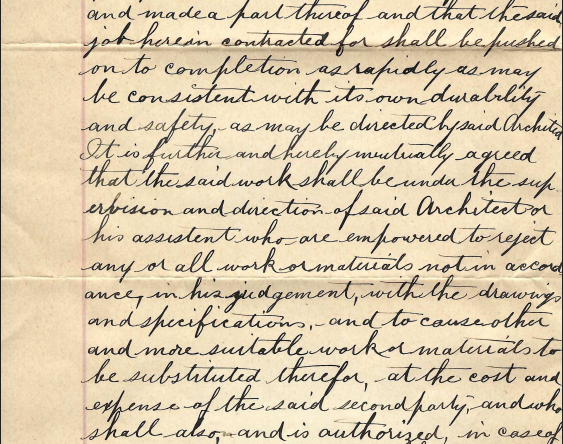 and made a part thereof and that the said
job herein contracted for shall be pushed
on to completion as rapidly as may
be consistent with its own durability
and safety, as may be directed by said Architect
It is further and hereby mutually agreed
that the said work shall be under the sup-
ervision and direction of said Architect or
his assistent who are empowered to reject
any or all work or materials not in accord
ance, in his judgement, with the drawings
and specifications, and to cause other
and more suitable work or materials to
be substituted therefor, at the cost and
expense of the said second party, and who
shall also, and is authorized, in case of